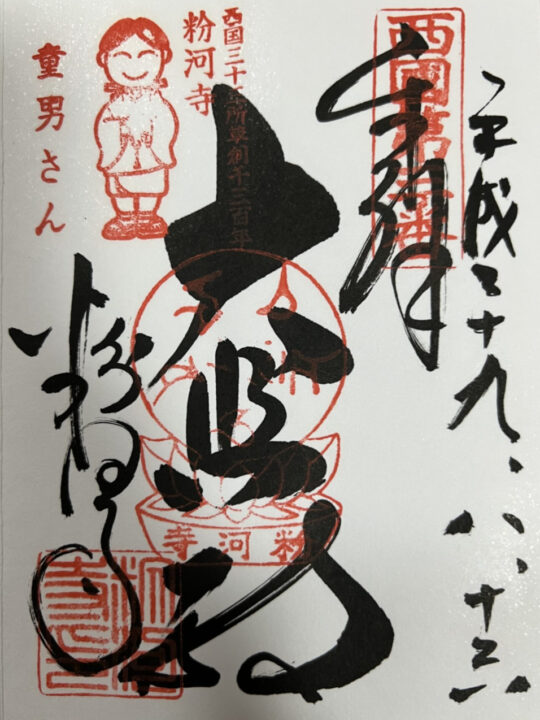 平成二十九、八、十六
西國第三番
奉拝
西国三十三所草創千三百年
粉河寺
童男さん
大悲殿
粉河寺
粉河寺